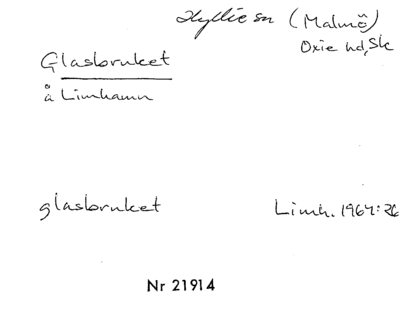 Hyllie sn (Malmö)
Oxie hd, Sk
Glasbruket
å Limhamn
glasbruket Limh. 1964:26
Nr 21914